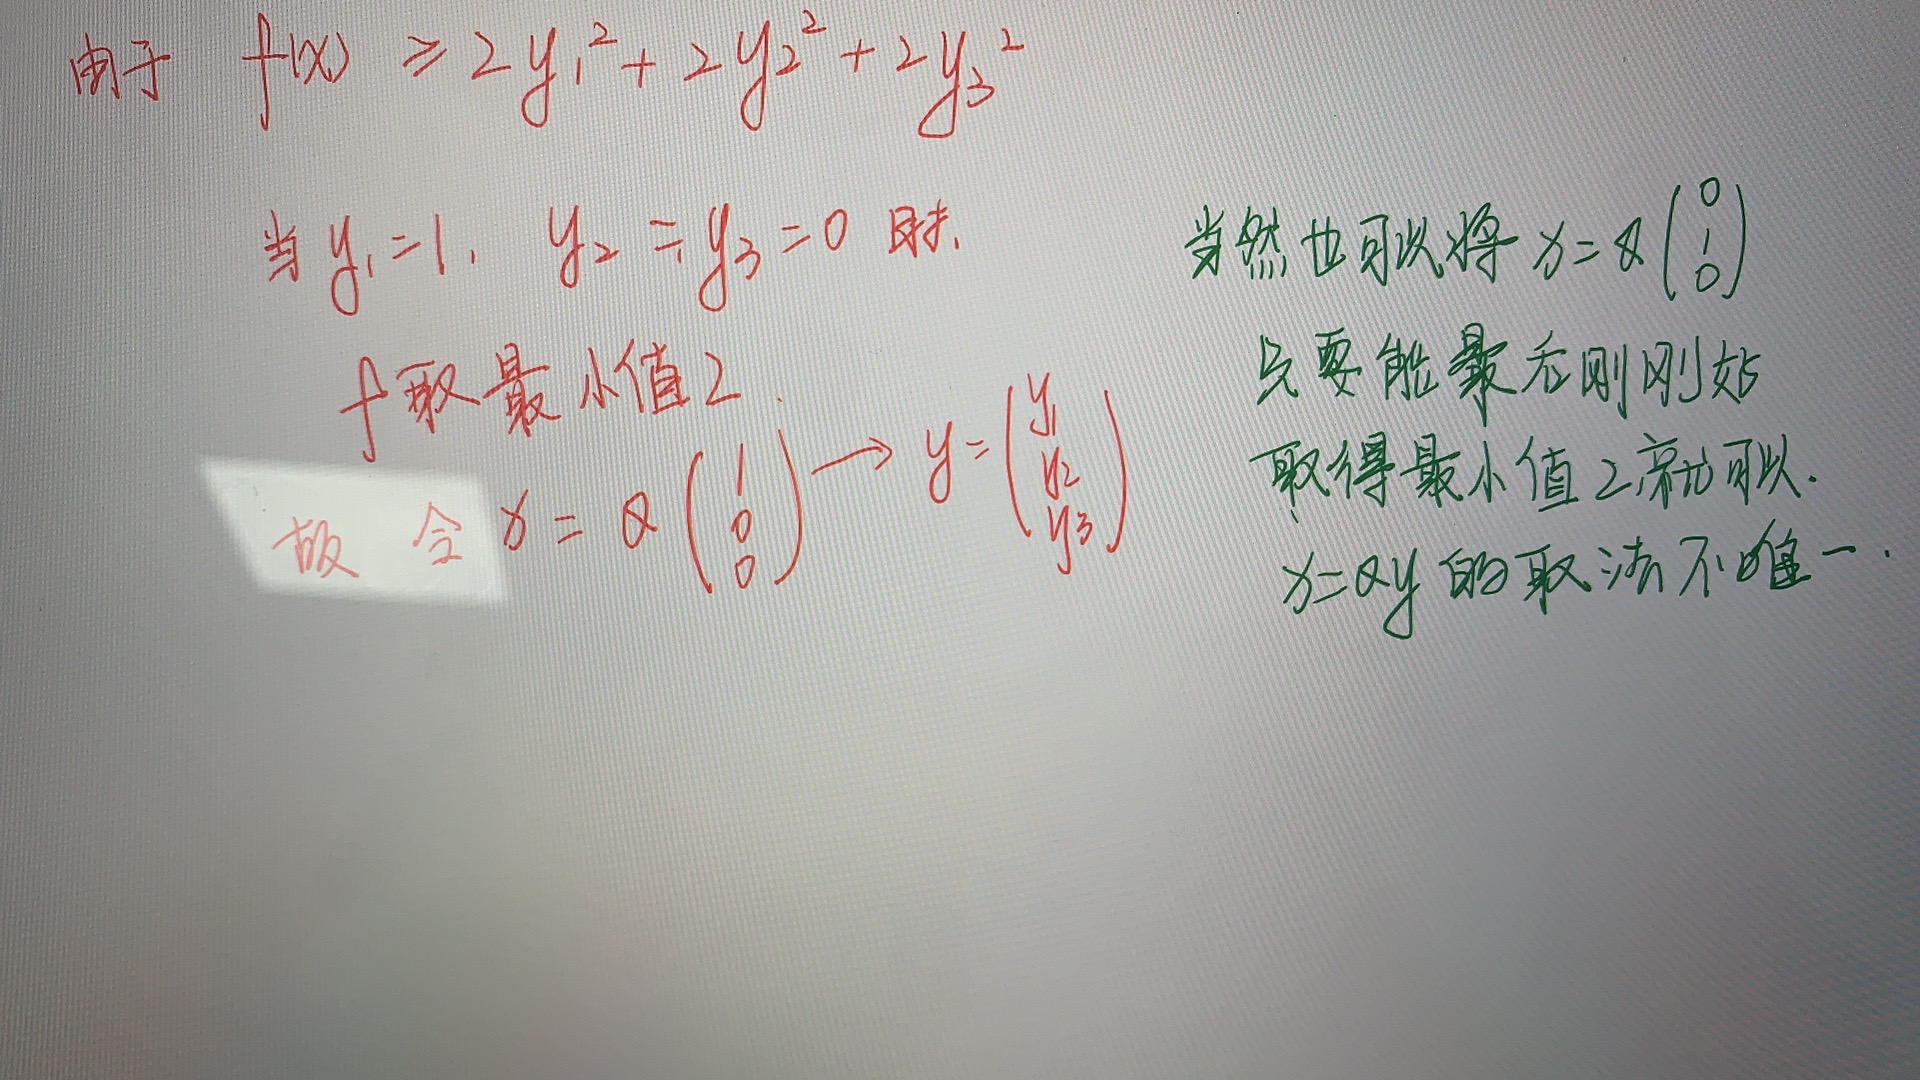 由于 f(x) ≥ 2y₁² + 2y₂² + 2y₃²
当 y₁=1, y₂=y₃=0 时.
f取最小值2.
故 令 x = Q (1 0 0) → y = (y₁ y₂ y₃)
当然也可以将 x=Q (0 1 0)
只要能最后刚刚好
取得最小值2就可以.
x=Qy 的取法不唯一.